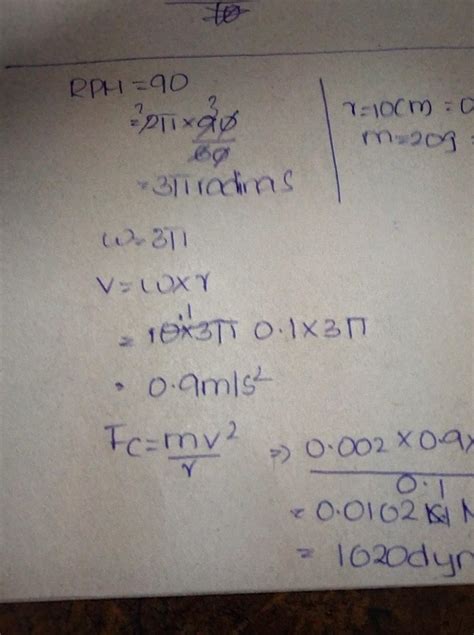 RPM = 90
= 2π × 90/60
= 3π rad/ms
r = 10cm = 0
m = 20g =
ω = 3π
V = ω × r
= 0.1 × 3π
= 0.9m/s²
Fc = mv²/r ⇒ 0.002 × 0.9×/0.1
= 0.0162 N
= 1620 dyn